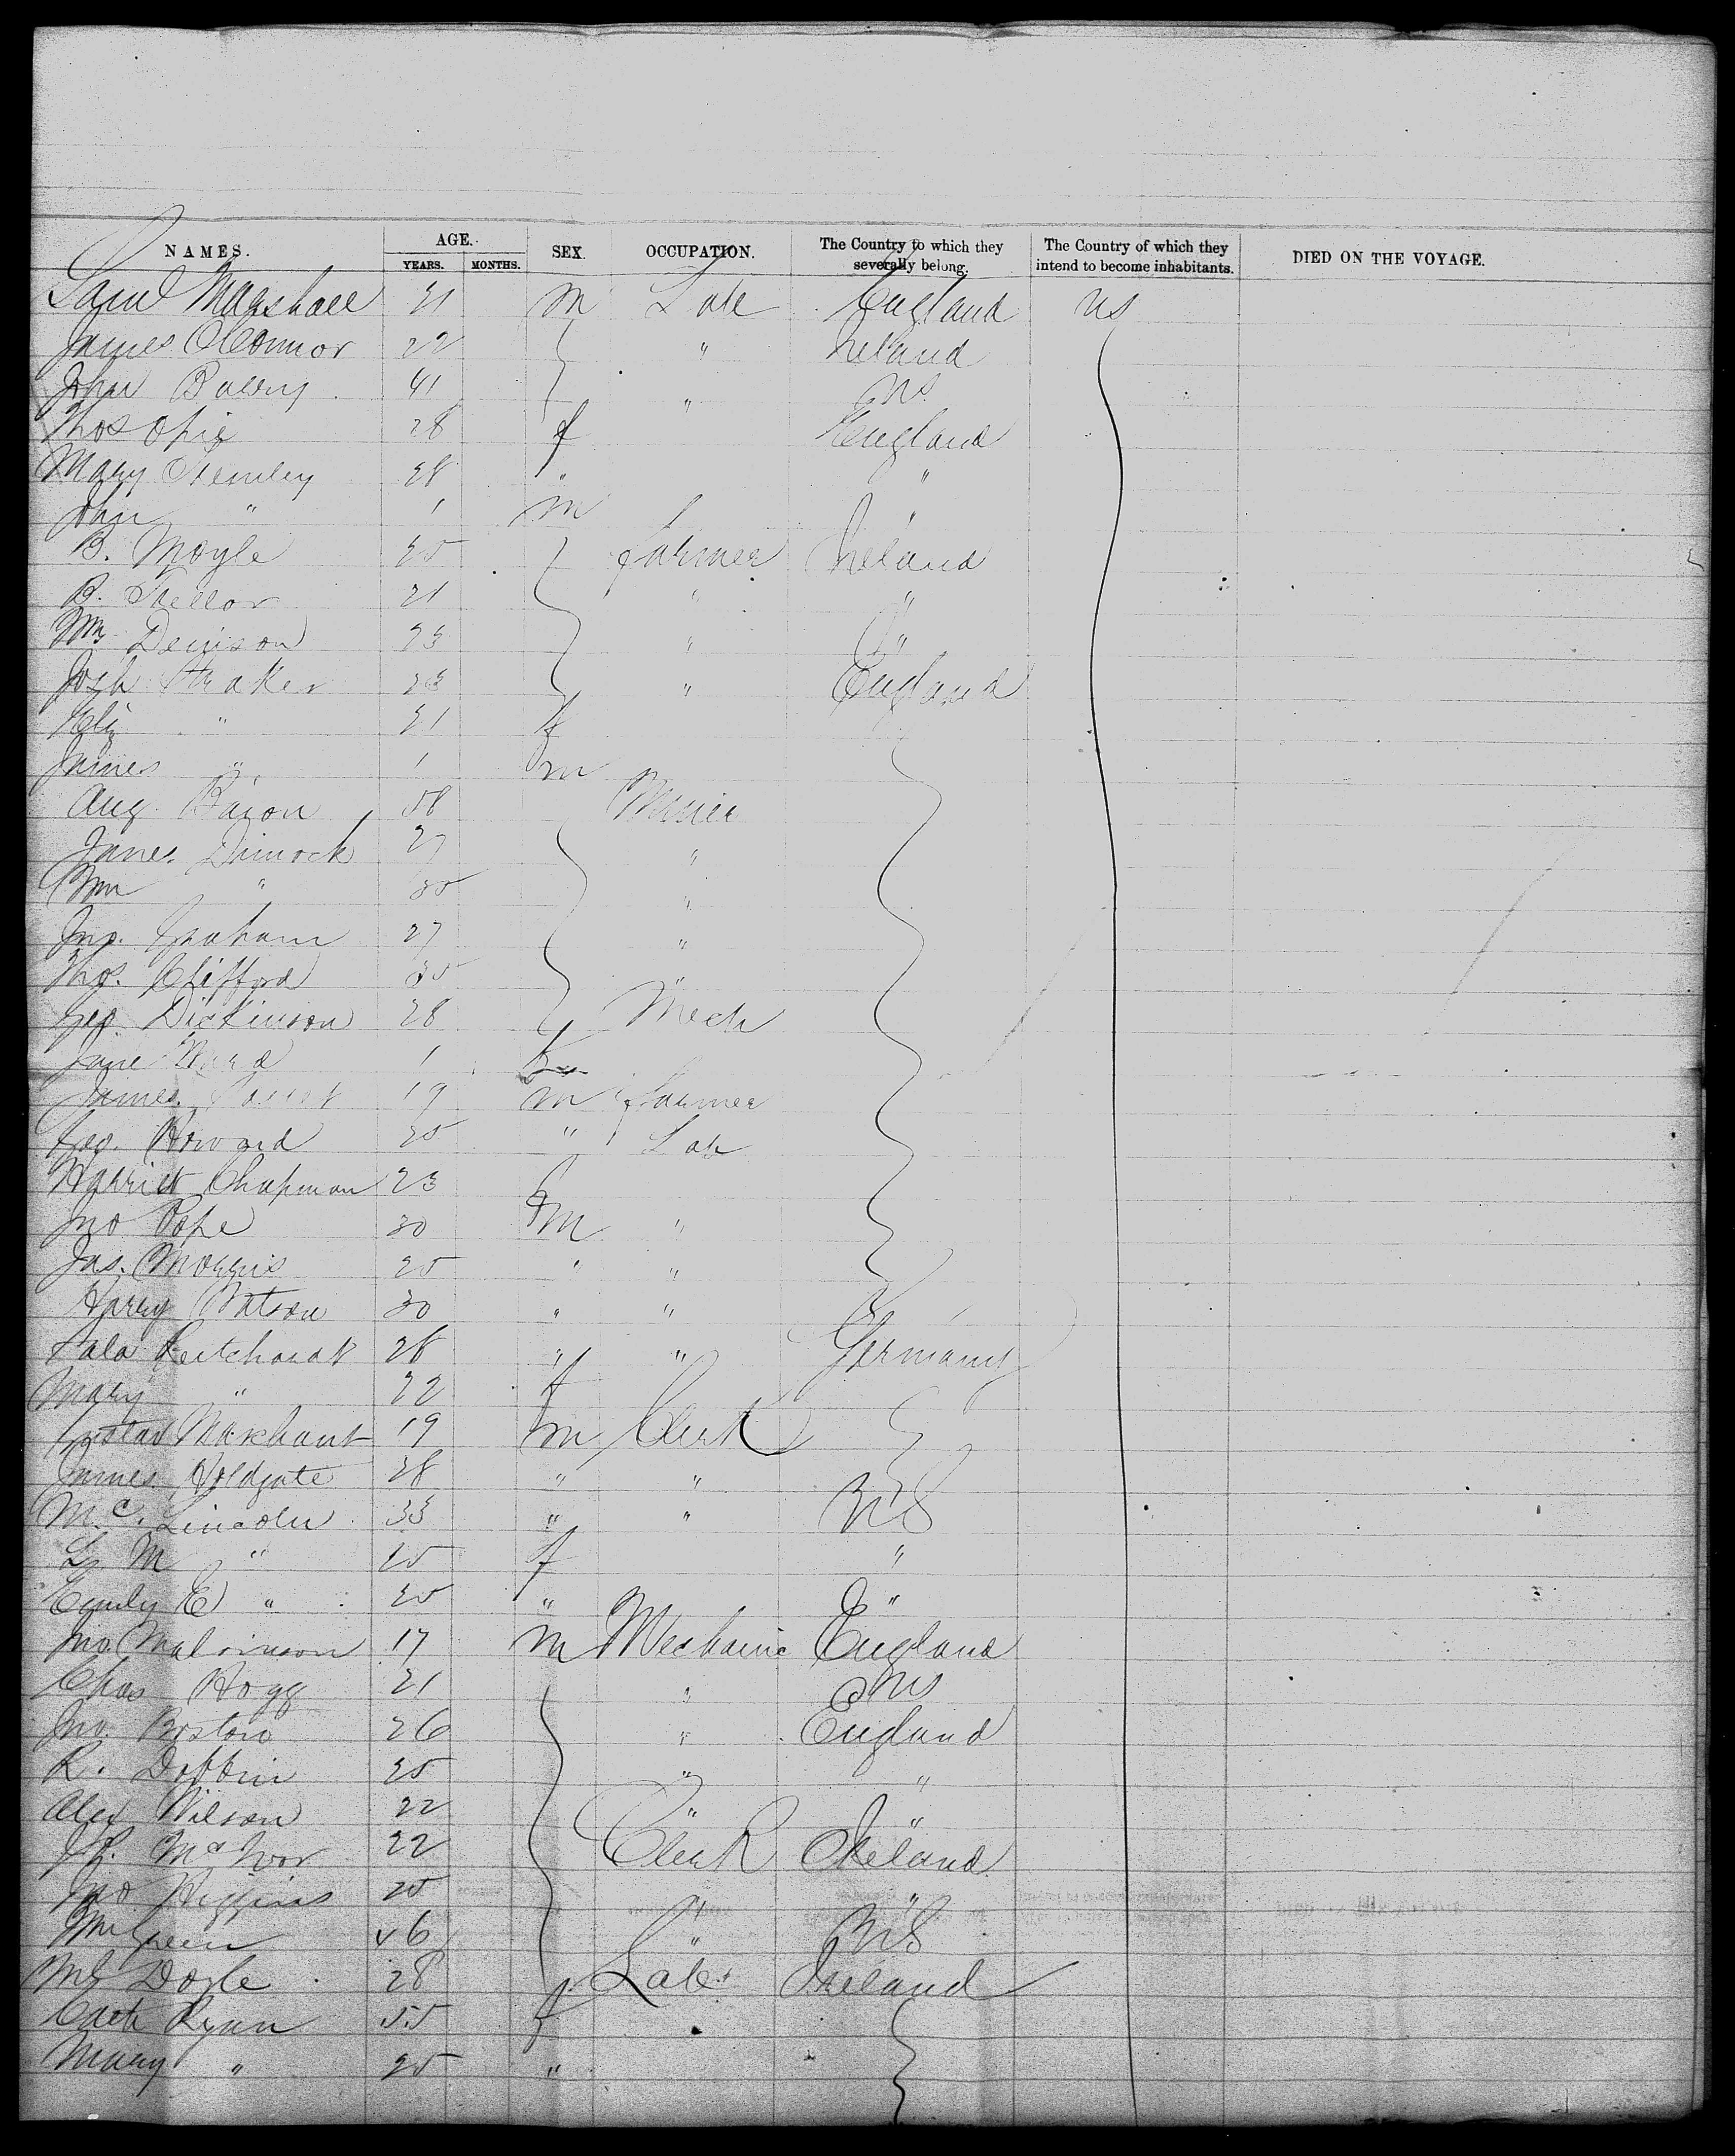 NAMES. AGE. SEX. OCCUPATION. The Country to which they severally belong. The Country of which they intend to become inhabitants. DIED ON THE VOYAGE.
YEARS. MONTHS.
Saml Marshall 21 m Lab England US
James OConnor 22 " Ireland
John 41 " US
Thos Opie 28 f England
Mary 28 " "
John " 1 m "
B. Moyle 25 farmer Ireland
B. 21 " "
Wm Denison 23 " "
Josh Straker 28 " England
Eliz " 21 f
James " 1 m
Aug. Bacon 58 Miner
James Dimock 27 "
Wm " 35 "
Jno. Graham 27 "
Thos. Clifford 35 "
Geo. Dickinson 28 Mech
Jane Ward 1 f
James 19 m farmer
Geo. Howard 25 " Lab
Harriet Chapman 23 f
Jno Pope 30 m "
Jas. Morris 25 " "
Harry Watson 30 " "
Reitchardt 28 " " Germany
Mary " 22 f
Gustav Marchant 19 m Clerk
James Holdgate 28 " "
M. C. Lincoln 33 " " US
L. M " f "
Emily E " 25 " "
Jno. 17 m Mechanic England
Chas Hogg 21 " US
Jno. Bostow 26 " England
R. Dobbin 25 " "
Alex Wilson 22 " "
McIvor 22 Clerk Ireland
Jno Higgins 25 " "
Wm Green 26 " US
Doyle 28 Lab Ireland
Cath Ryan 55 f
Mary " 25 "